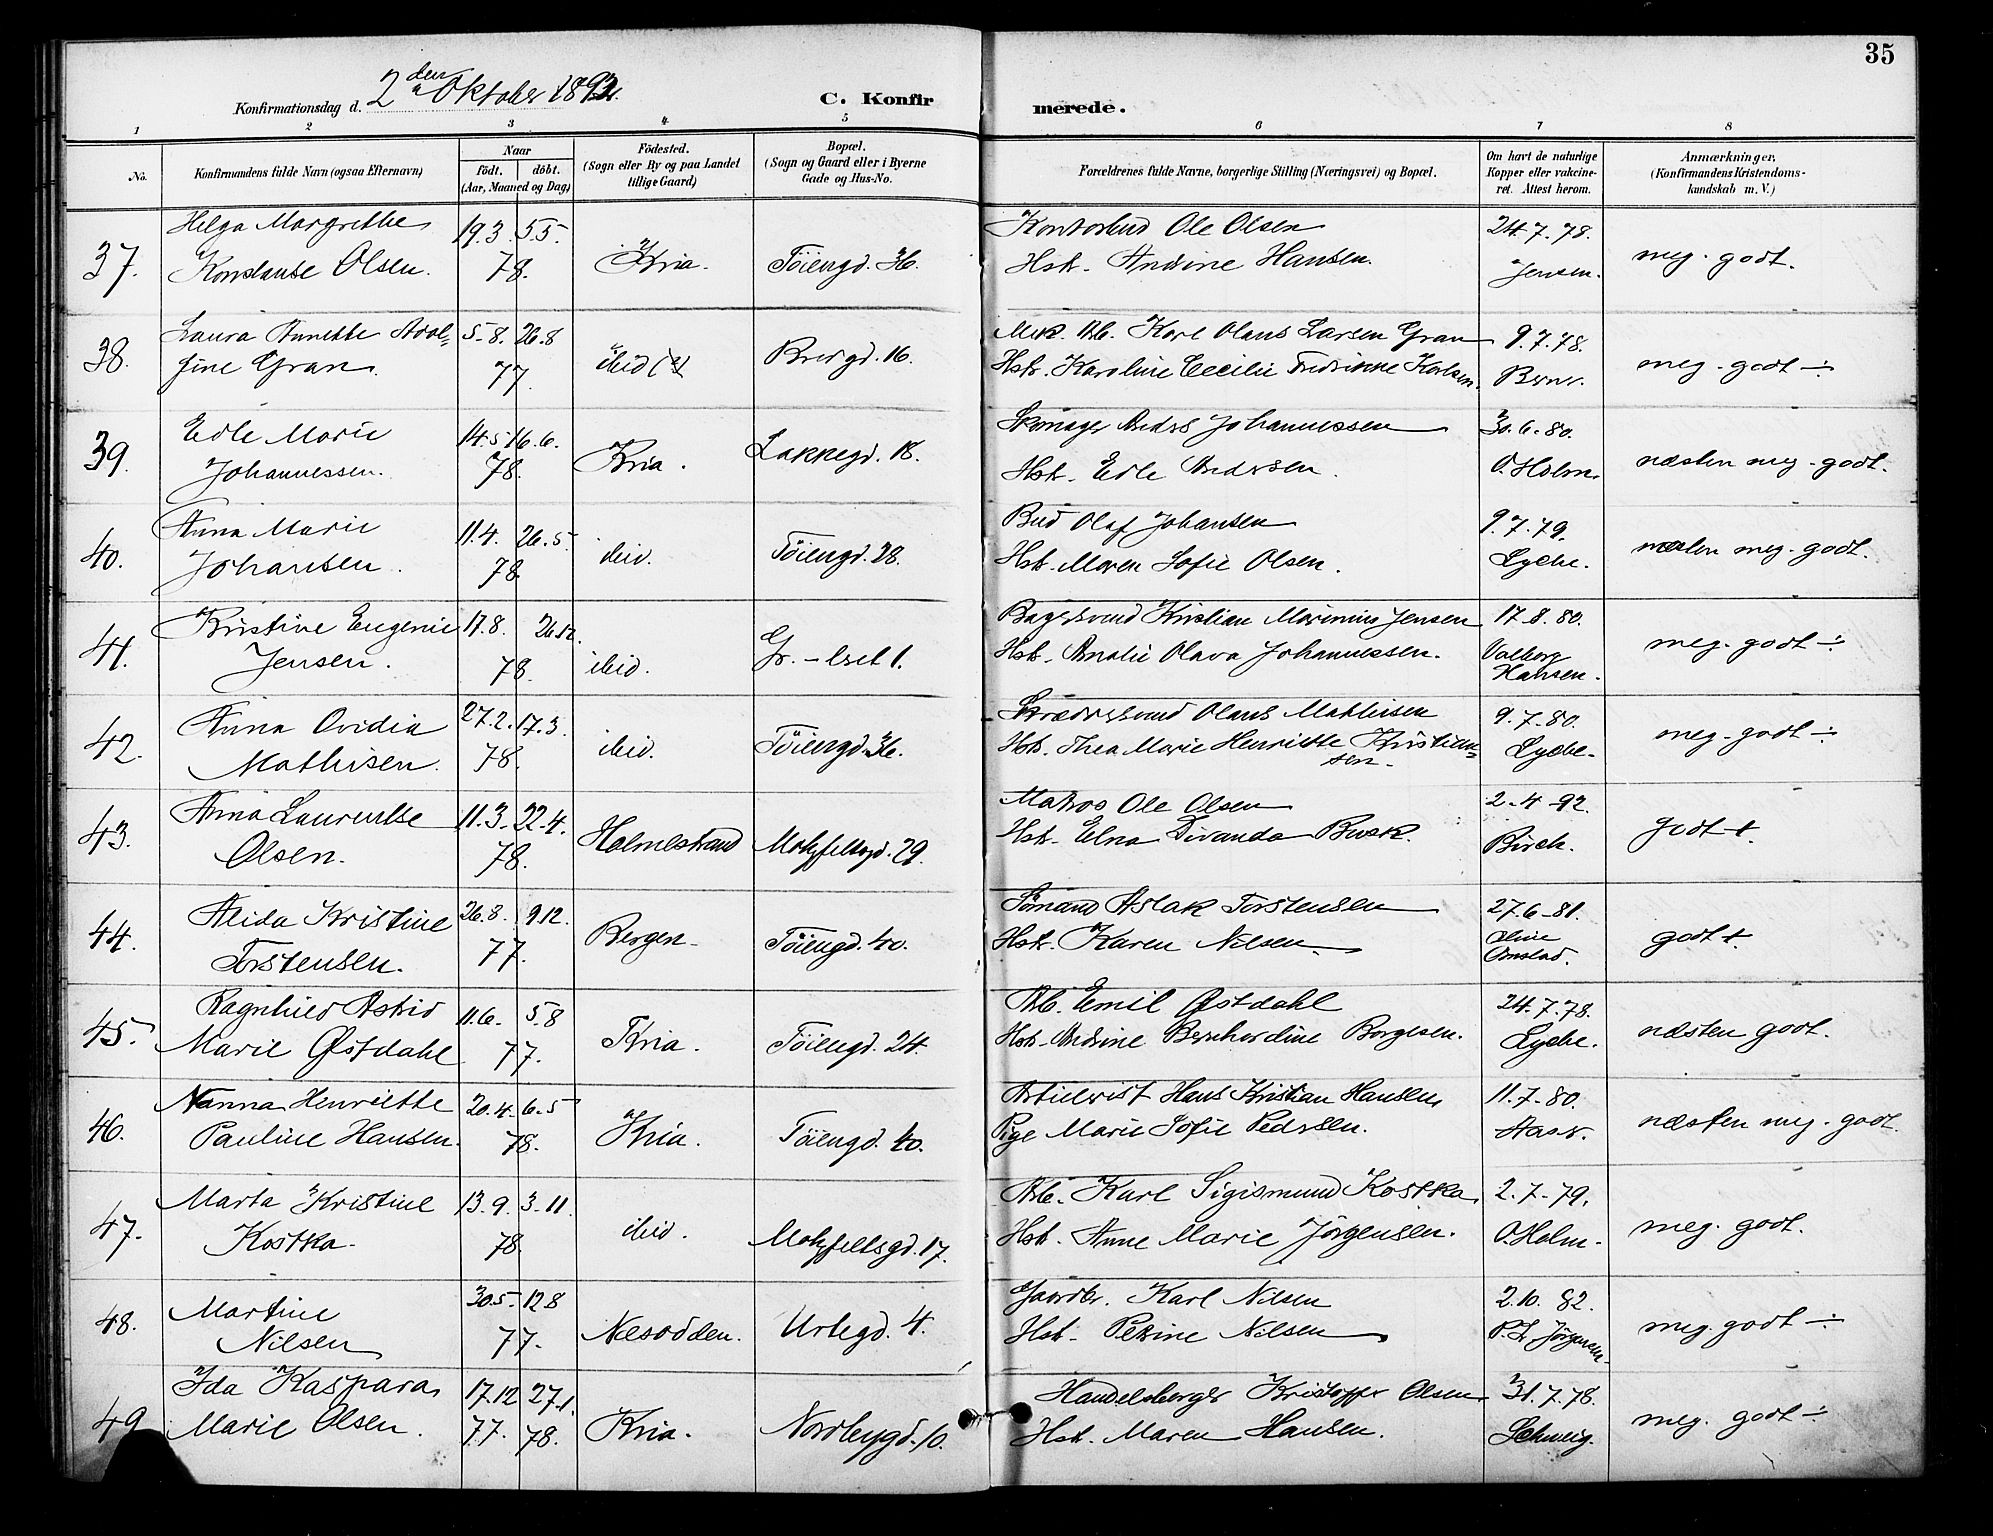 35
Konfirmationsdag d. 2den Oktober 1892.
C. Konfirmerede.
1 2 3 4 5 6 7 8
No.
Konfirmandens fulde Navn (ogsaa Efternavn)
Naar
födt. döbt.
(Aar, Maaned og Dag)
Födested.
(Sogn eller By og paa Landet tillige Gaard)
Bopæl.
(Sogn og Gaard eller i Byerne Gade og Hus-No.
Forældrenes fulde Navne, borgerlige Stilling (Næringsvei) og Bopæl.
Om havt de naturlige Kopper eller vakcineret. Attest herom.
Anmærkninger,
(Konfirmandens Kristendomskundskab m. V.)
37. Helga Margrethe Konstanse Olsen. 19.3. 5.5. 78. Kria. Töiengd. 36. Kontorbud Ole Olsen
Hst. Andrine Hansen. 24.7.78. Jensen. meg. godt.
38. Laura Annette Adolfine Gran. 5.8. 26.8 77. ibid Breigd. 16. Mek. Arb. Karl Olaus Larsen Gran
Hstr. Karoline Cecilie Fredrikke Karlsen. 9.7.78. meg. godt ÷
39. Edle Marie Johannessen. 14.5 16.6. 78. Kria. Lakkegd. 18. Skomager Anders Johannessen
Hst. Edle Andersen. 30.6.80. O. Holm. næsten meg. godt.
40. Anna Marie Johansen. 11.4. 26.5. 78. ibid. Töiengd. 28. Bud Olaf Johansen
Hst. Maren Sofie Olsen. 9.7.79. Lyche. næsten meg. godt.
41. Kristine Eugenie Jensen. 17.8. 26.12. 78. ibid. Gr. – leret 1. Bagersvend Kristian Marinius Jensen
Hst. Amalie Olava Johannessen. 17.8.80. Valborg Hansen. meg. godt ÷
42. Anna Ovidia Mathisen. 27.2. 17.3. 78. ibid. Töiengd. 36. Skrædersvend Olaus Mathisen
Hst. Thea Marie Henriette Kristiansen. 9.7.80. Lyche. meg. godt ÷
43. Anna Laurentse Olsen. 11.3. 22.4. 78. Holmestrand Motzfeltsgd. 29. Matros Ole Olsen
Hst. Elna Divanda Busk. 2.4.92. Birch. godt +.
44. Alida Kristine Torstensen. 26.8. 9.12. 77. Bergen Töiengd. 40. Sömand Aslak Torstensen
Hst. Karen Nilsen. 27.6.81. godt +.
45. Ragnhild Astrid Marie Østdahl. 11.6. 5.8 77. Kria. Töiengd. 24. Arb. Emil Østdahl
Hst. Andrine Bernhardine Borgesen. 24.7.78. Lyche. næsten godt.
46. Nanna Henriette Pauline Hansen. 20.4. 6.5 78. Kria. Töiengd. 40. Artilerist Hans Kristian Hansen
Pige Marie Sofie Pedersen. 11.7.80. næsten meg. godt.
47. Marta Kristine Kostka. 13.9. 3.11. 78. ibid. Motzfeltsgd. 17. Arb. Karl Sigismund Kostka
Hst. Anne Marie Jörgensen. 2.7.79. O. Holm. meg. godt.
48. Martine Nilsen 30.5. 12.8 77. Næsodden. Urtegd. 4. Gaardbr. Karl Nilsen
Hst. Petrine Nilsen 2.10. 82. P. L. Jörgensen meg. godt ÷
49. Ida Kaspara Marie Olsen. 17.12 77. 27.1. 78. Kria. Nordbygd. 10. Handelsborger Kristoffer Olsen
Hst. Maren Hansen. 31.7.78. Schweig. meg. godt ÷